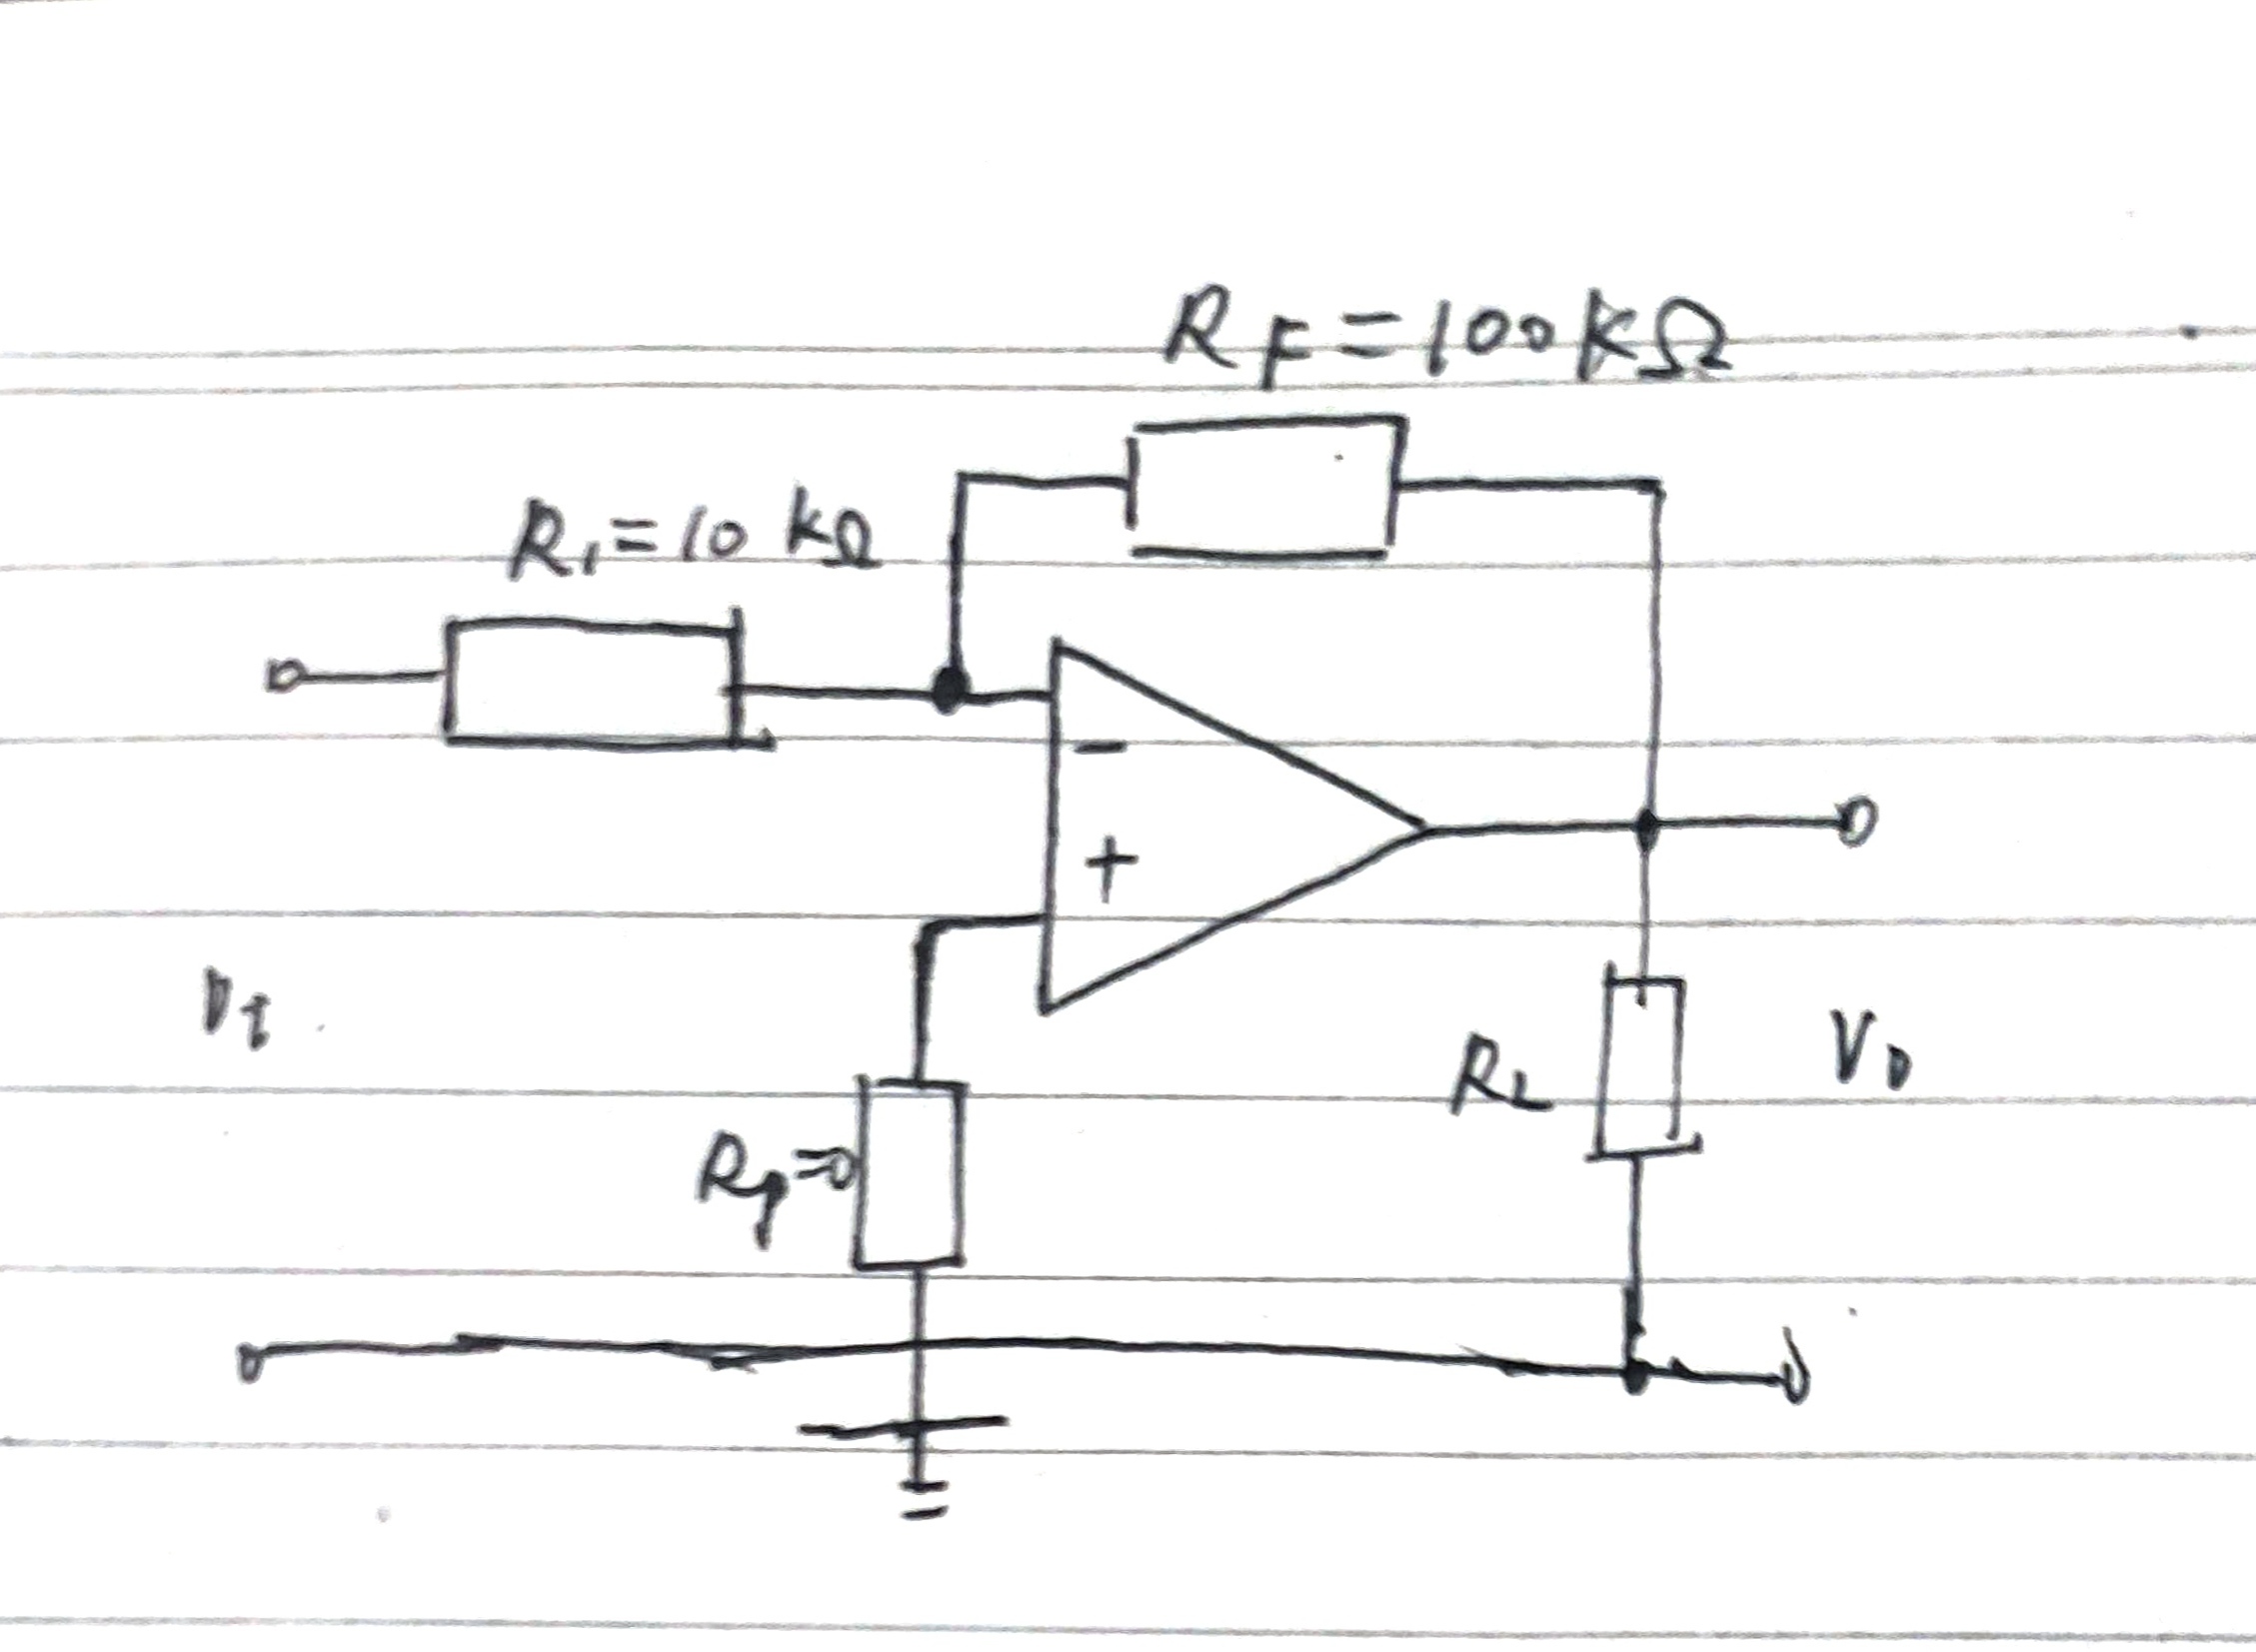 R_F = 100 kΩ
R_1 = 10 kΩ
-
+
V_i
R_L
V_o
R_p = 0